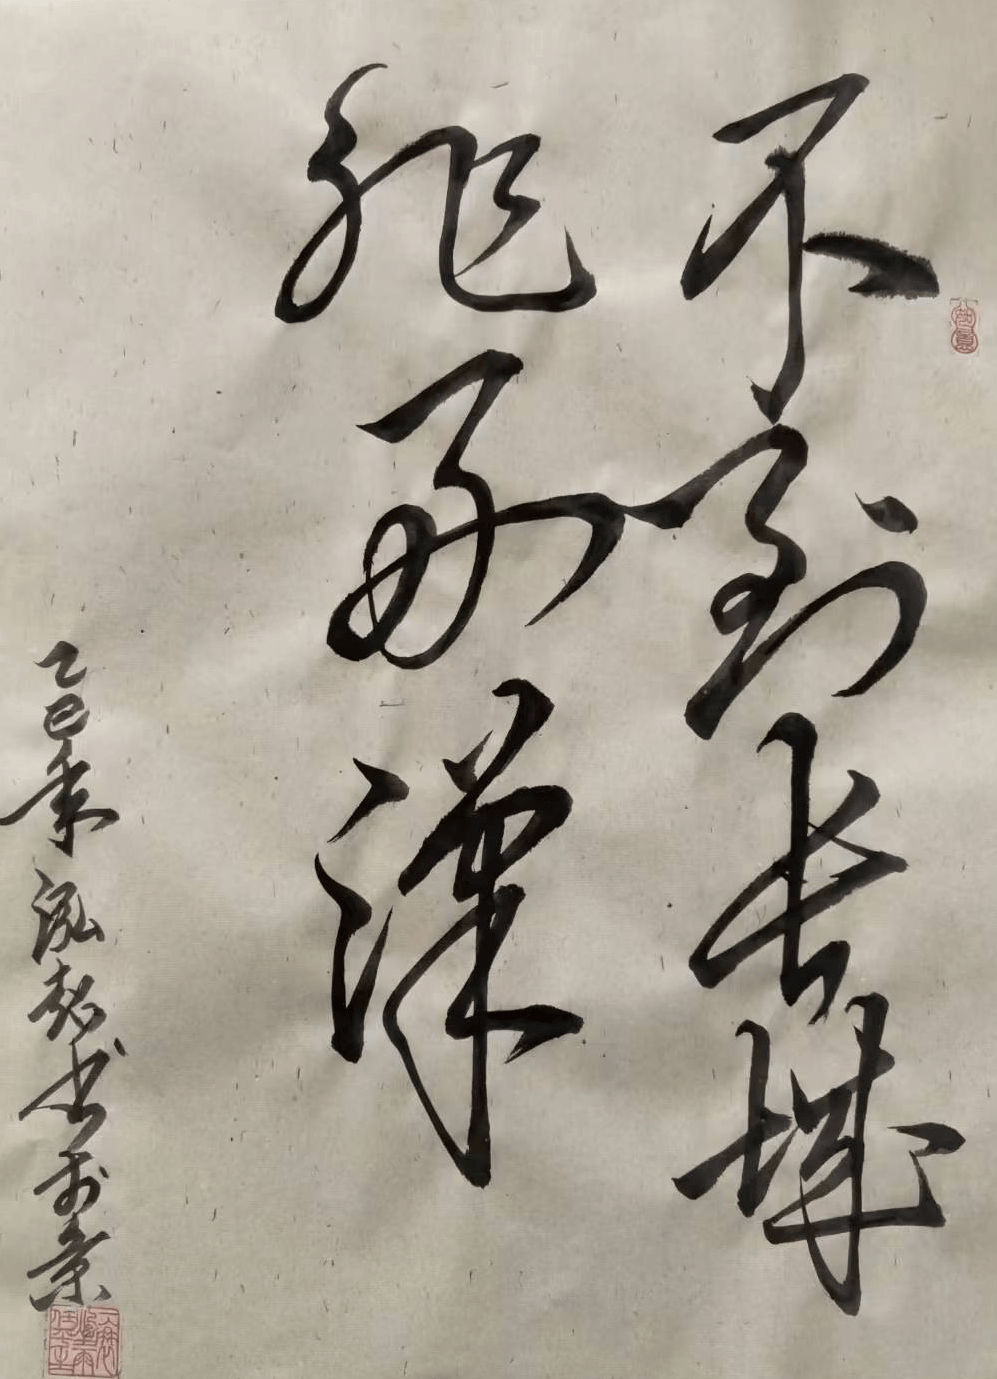 不到长城
非好汉
乙巳年 泓超书于京